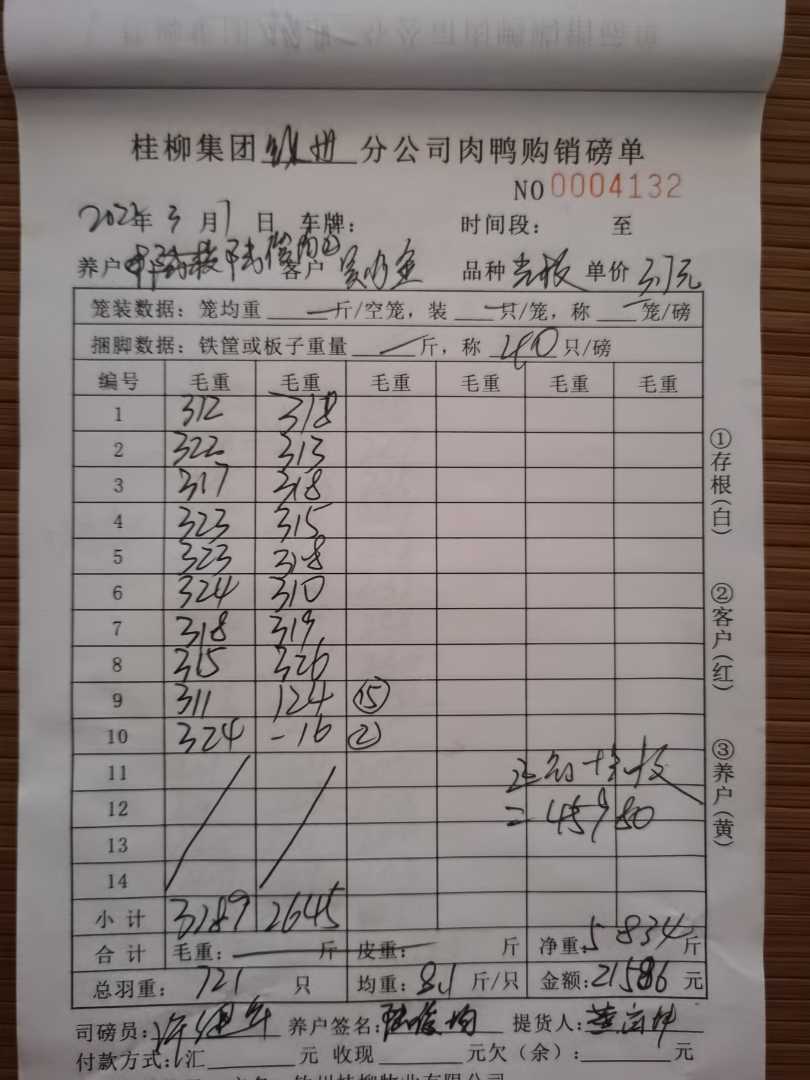 桂柳集团钦州分公司肉鸭购销磅单
NO 0004132
年 3 月 7 日 车牌: 时间段: 至
养户 客户 品种 单价 3.7元
笼装数据: 笼均重 — 斤/空笼, 装 — 只/笼, 称 — 笼/磅
捆脚数据: 铁筐或板子重量 — 斤, 称 40 只/磅
编号 毛重 毛重 毛重 毛重 毛重 毛重
1 312 318
2 322 313
3 317 318
4 323 315
5 323 318
6 324 310
7 318 319
8 315 326
9 311 124 ⑮
10 324 -16 ②
11
12
13
14
= 45980
小计 3189 2645
合计 毛重: — 斤 皮重: — 斤 净重: 5834 斤
总羽重: 721 只 均重: 8.1 斤/只 金额: 21586 元
司磅员: 养户签名: 提货人:
付款方式: 汇 元 收现 元欠(余): 元
①存根(白)
②客户(红)
③养户(黄)